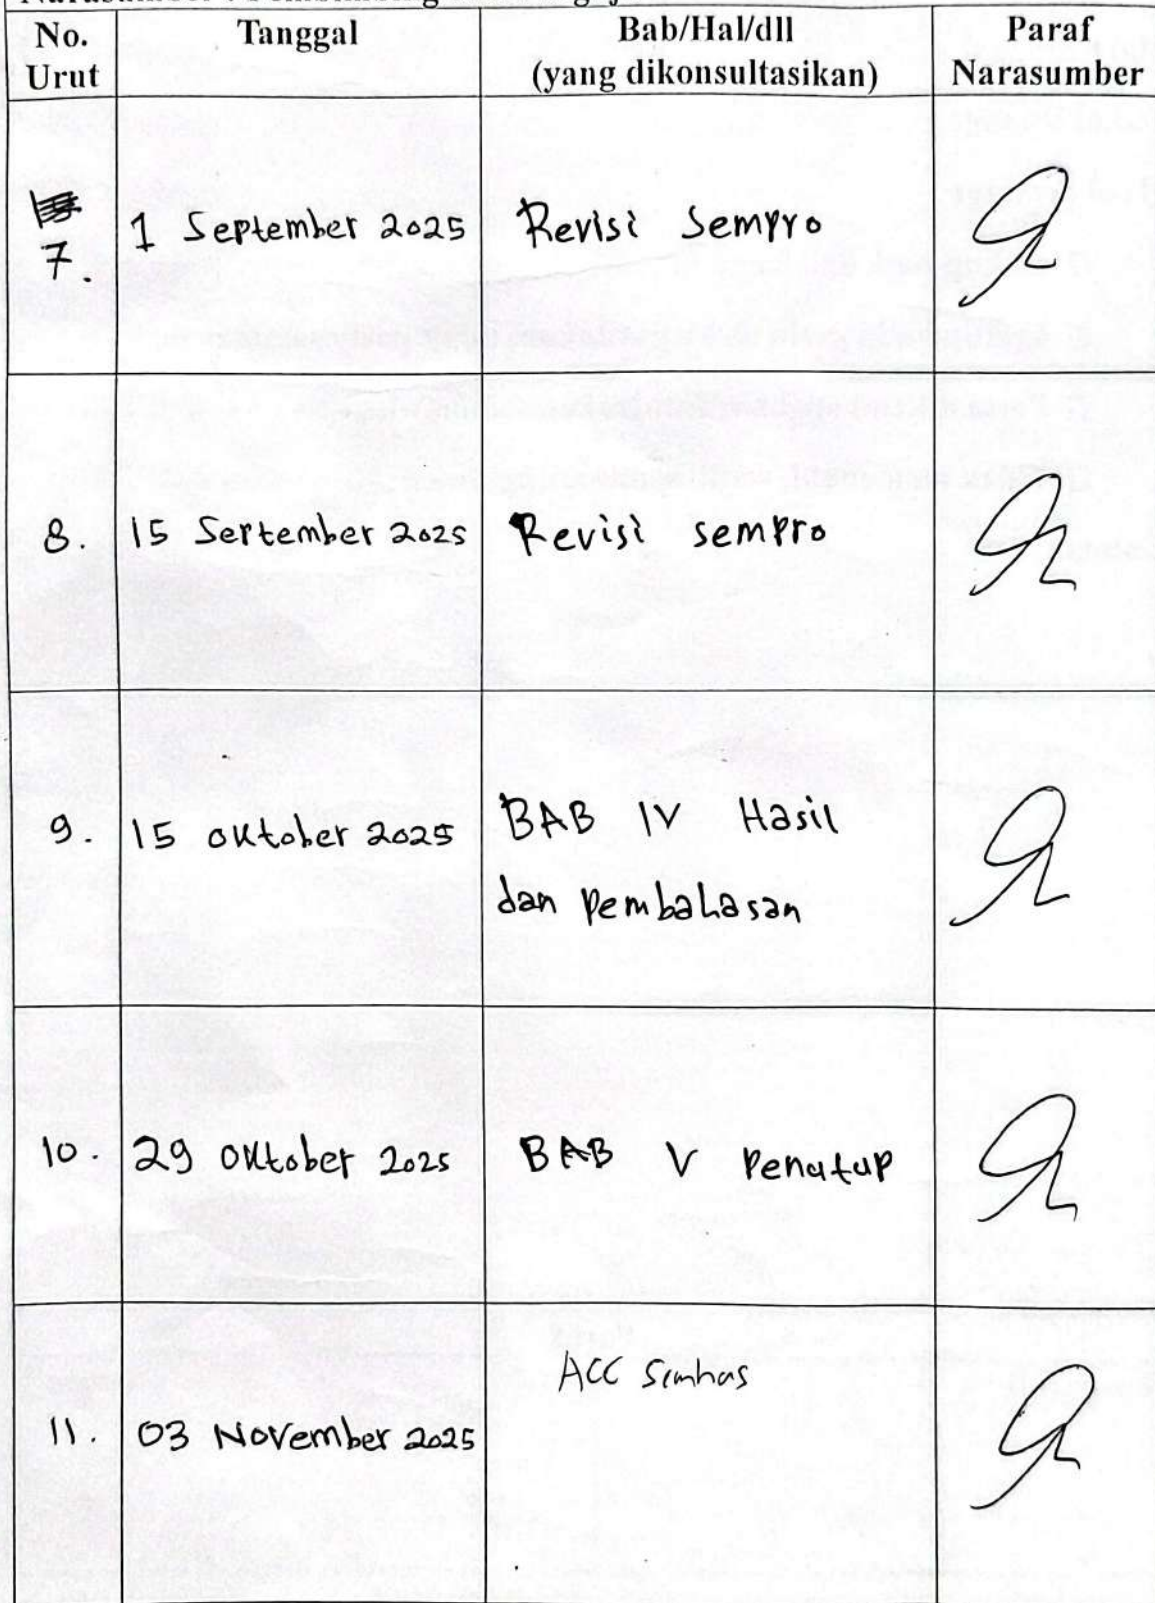 No. Urut Tanggal Bab/Hal/dll (yang dikonsultasikan) Paraf Narasumber
7. 1 September 2025 Revisi Sempro
8. 15 September 2025 Revisi sempro
9. 15 oktober 2025 BAB IV Hasil
dan pembahasan
10. 29 oktober 2025 BAB V Penutup
ACC Semhas
11. 03 November 2025